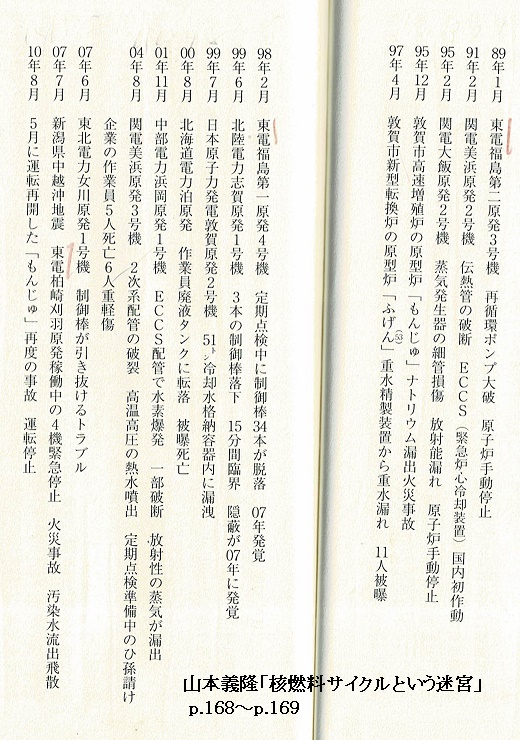 89年1月 東電福島第二原発3号機 再循環ポンプ大破 原子炉手動停止
91年2月 関電美浜原発2号機 伝熱管の破断 ECCS(緊急炉心冷却装置)国内初作動
95年2月 関電大飯原発2号機 蒸気発生器の細管損傷 放射能漏れ 原子炉手動停止
95年12月 敦賀市高速増殖炉の原型炉「もんじゅ」ナトリウム漏出火災事故
97年4月 敦賀市新型転換炉の原型炉「ふげん」(53)重水精製装置から重水漏れ 11人被曝
98年2月 東電福島第一原発4号機 定期点検中に制御棒34本が脱落 07年発覚
99年6月 北陸電力志賀原発1号機 3本の制御棒落下 15分間臨界 隠蔽が07年に発覚
99年7月 日本原子力発電敦賀原発2号機 51トン冷却水格納容器内に漏洩
00年8月 北海道電力泊原発 作業員廃液タンクに転落 被曝死亡
01年11月 中部電力浜岡原発1号機 ECCS配管で水素爆発 一部破断 放射性の蒸気が漏出
04年8月 関電美浜原発3号機 2次系配管の破裂 高温高圧の熱水噴出 定期点検準備中のひ孫請け
企業の作業員5人死亡6人重軽傷
07年6月 東北電力女川原発1号機 制御棒が引き抜けるトラブル
07年7月 新潟県中越沖地震 東電柏崎刈羽原発稼働中の4機緊急停止 火災事故 汚染水流出飛散
10年8月 5月に運転再開した「もんじゅ」再度の事故 運転停止
山本義隆「核燃料サイクルという迷宮」
p.168～p.169